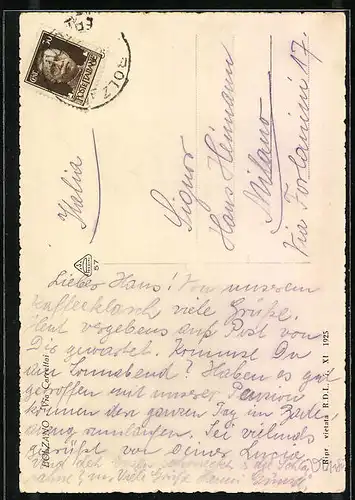 BOLZ
Italia
Signor
Hans Heimann
Milano
Via Forlanini 17.
57
Lieber Hans! Von unserem
Kaffeeklasch viele Grüße.
Heut vergebens auf Post von
Dir gewartet. Kommst Du
den Sonnabend? Haben es gut
getroffen mit unserer Pension
können den ganzen Tag im Bade-
anzug rumlaufen. Sei vielmals
gegrüßt von Deiner Lucie
Viele Grüße
BOLZANO - Via Cavallai
Clispe vietata R.D.L. XI 1925